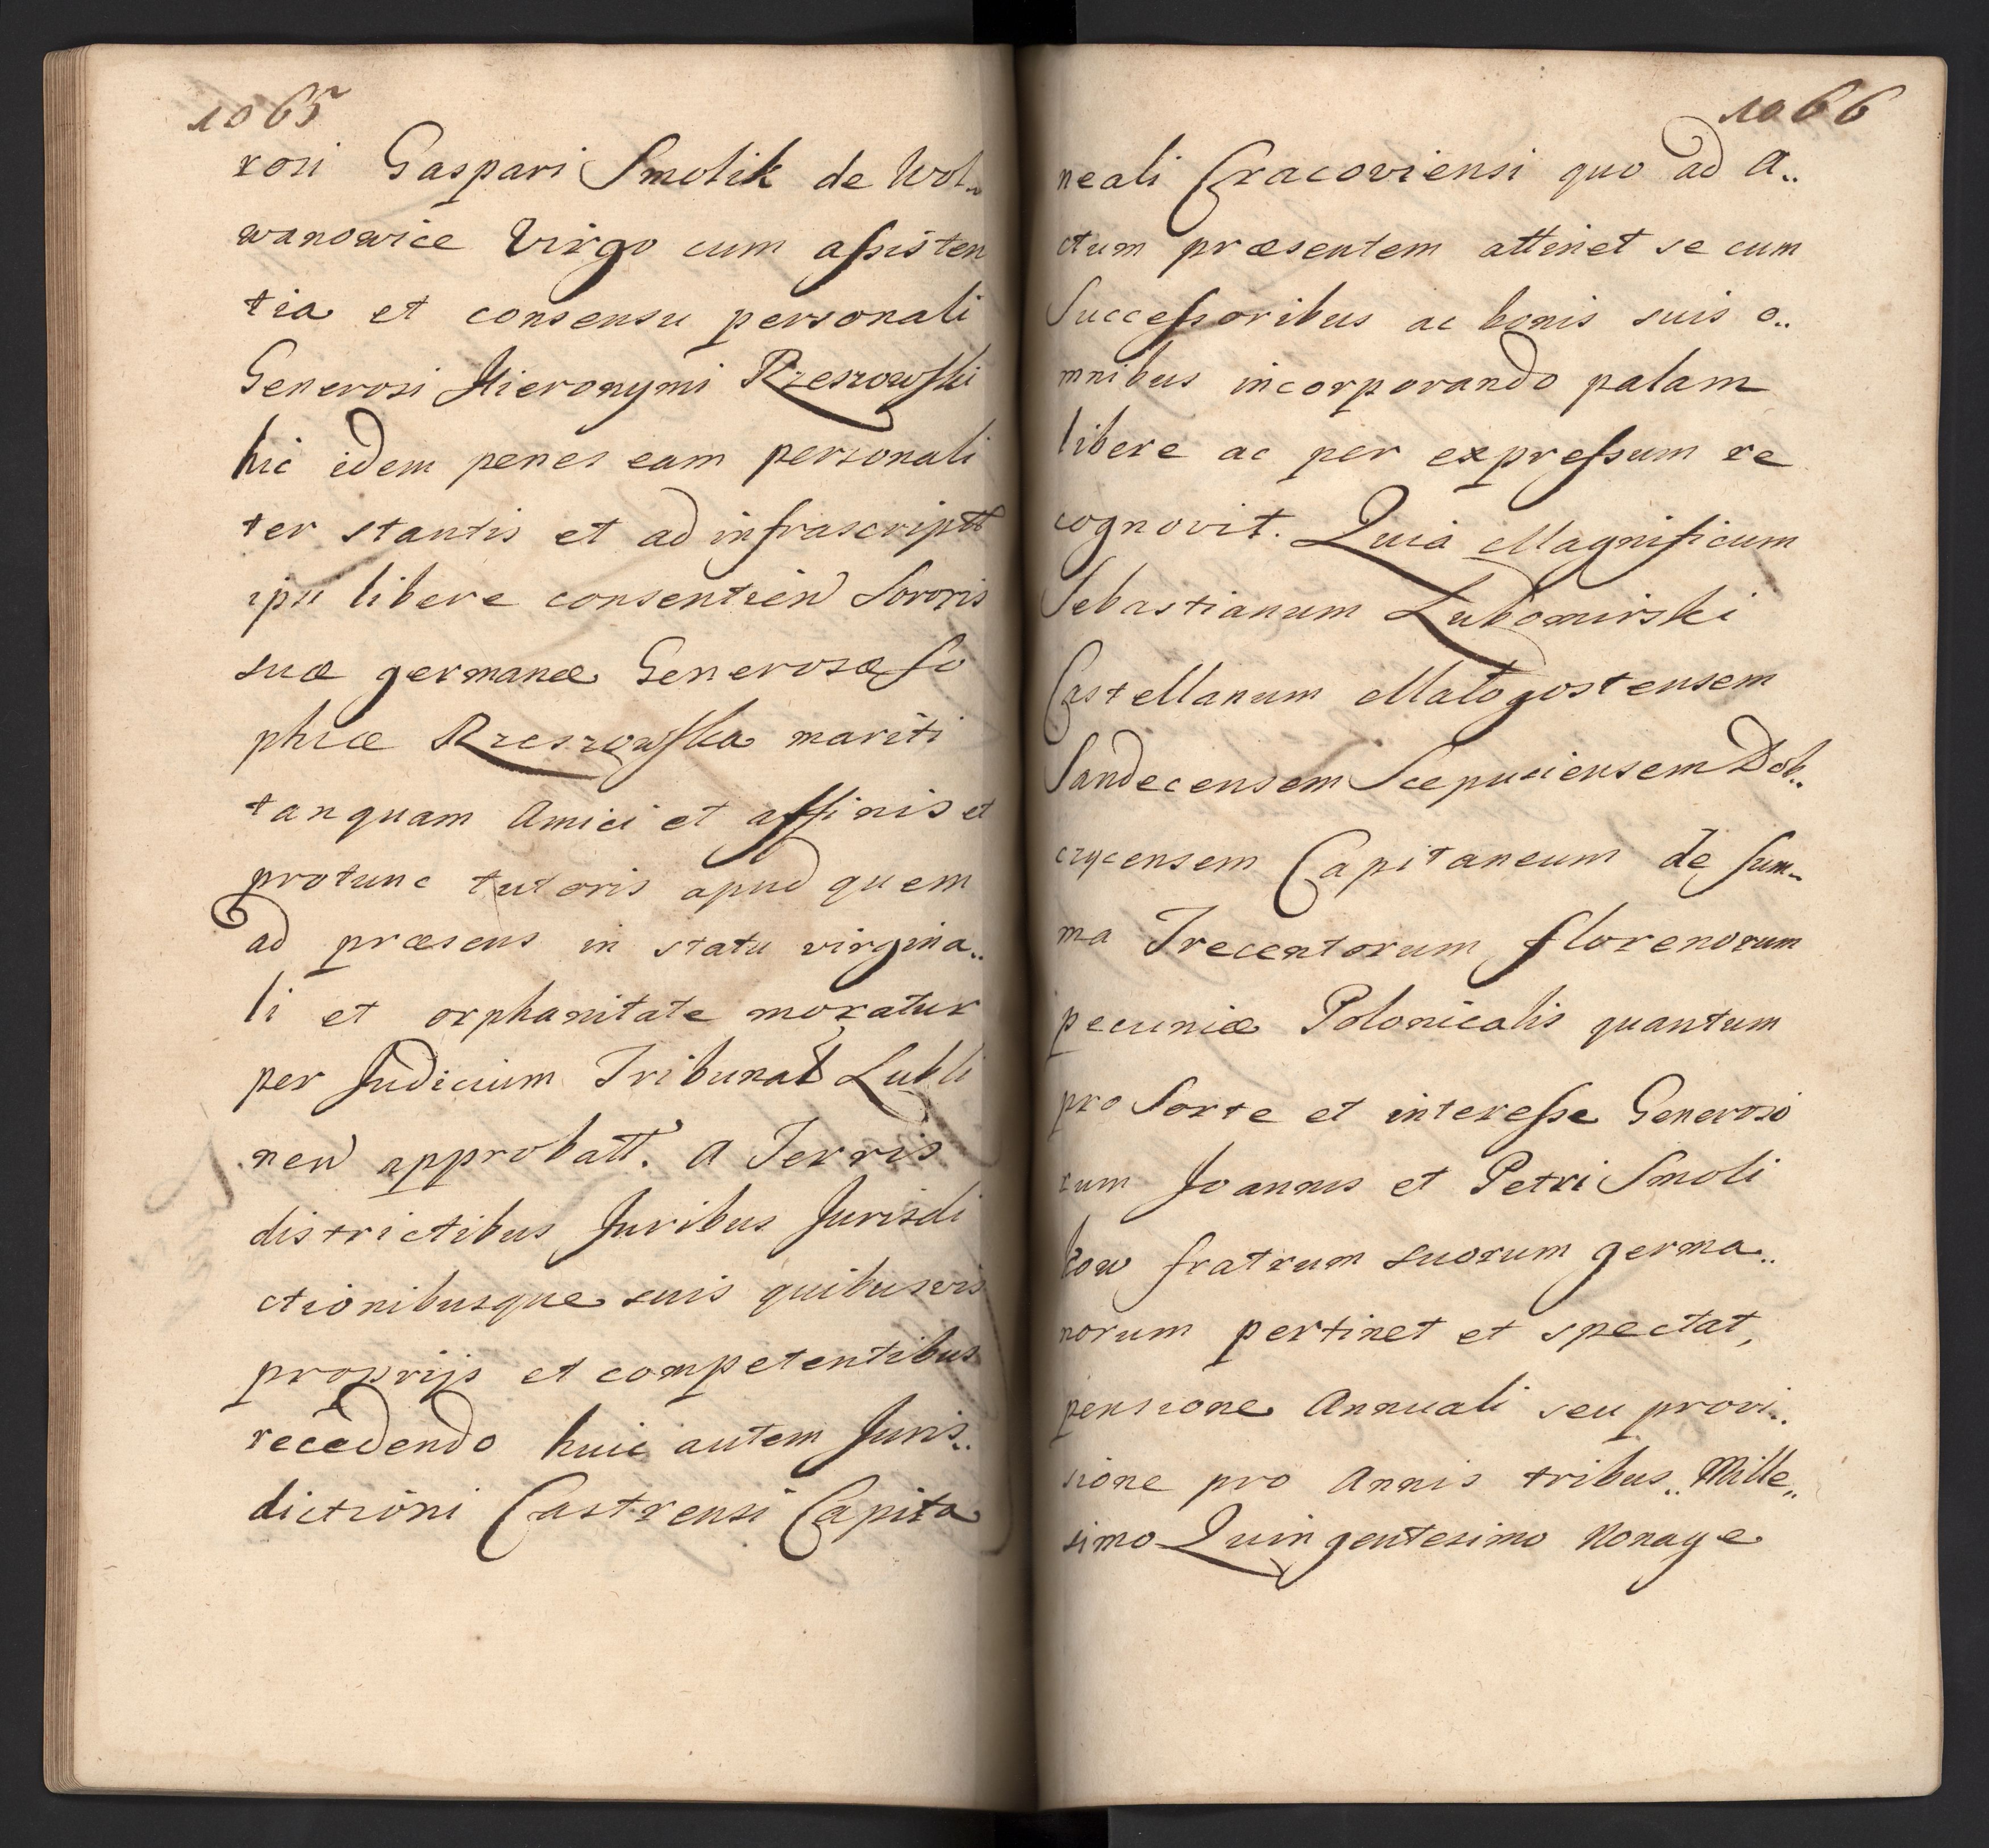 1065
rosi Gaspari Smolik de Wol„
wanowice Virgo cum assisten
tia et consensu personali
Generosi Hieronymi Rzeszowski
hic idem penes eam personali
ter stantis et ad infrascriptt
ipsi libere consentien Sororis
suæ germanæ Generosæ So
phiæ Rzeszowska mariti
tanquam Amici et affinis et
protunc tutoris apud quem
ad præsens in statu virgina„
li et orphanitate moratur
per Judicium Tribunal Lubli
nen approbatt. a Terris
districtibus Juribus Jurisdi
ctionibusque suis quibusvis
proprijs et competentibus
recedendo huic autem Juris„
dictioni Castrensi Capita
1066
neali Cracoviensi quo ad A„
ctum præsentem attinet se cum
Successoribus ac bonis suis o„
mnibus incorporando palam
libere ac per expressum re
cognovit. Quia Magnificum
Sebastianum Lubomirski
Castellanum Malogostensem
Sandecensem Scepusiensem Dob„
czycensem Capitaneum de sum„
ma Trecentorum florenorum
pecuniæ Polonicalis quantum
pro Sorte et interesse Generoso
rum Joannis et Petri Smoli
kow fratrum suorum germa„
norum pertinet et spectat,
pensione Annuali seu provi„
sione pro Annis tribus„ Mille„
simo Quingentesimo Nonage